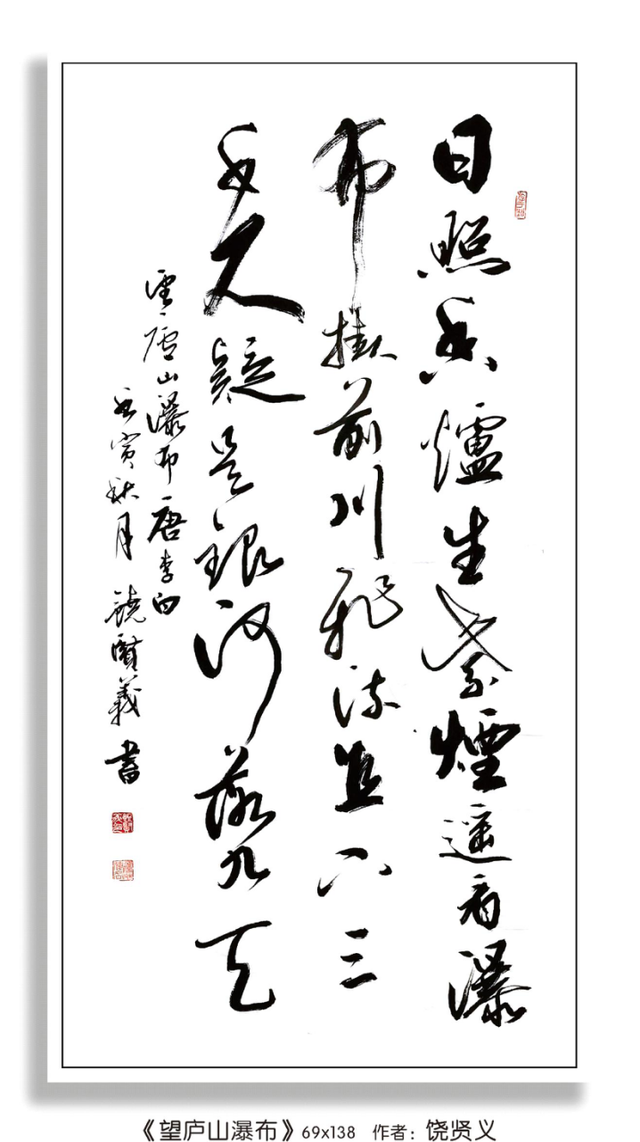 日照香爐生紫煙遥看瀑
布掛前川飛流直下三
千尺疑是銀河落九天
望廬山瀑布唐李白
壬寅秋月饒賢義書
《望庐山瀑布》69x138 作者：饶贤义